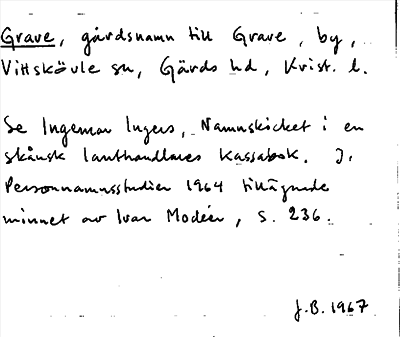 Grave, gårdsnamn till Grave, by,
Vittskövle sn, Gärds hd, Krist. l.
Se Ingemar Ingers, Namnskicket i en
skånsk lanthandlares kassabok. I:
Personnamnsstudier 1964 tillägnade
minnet av Ivar Modéer, s. 236.
J.B. 1967